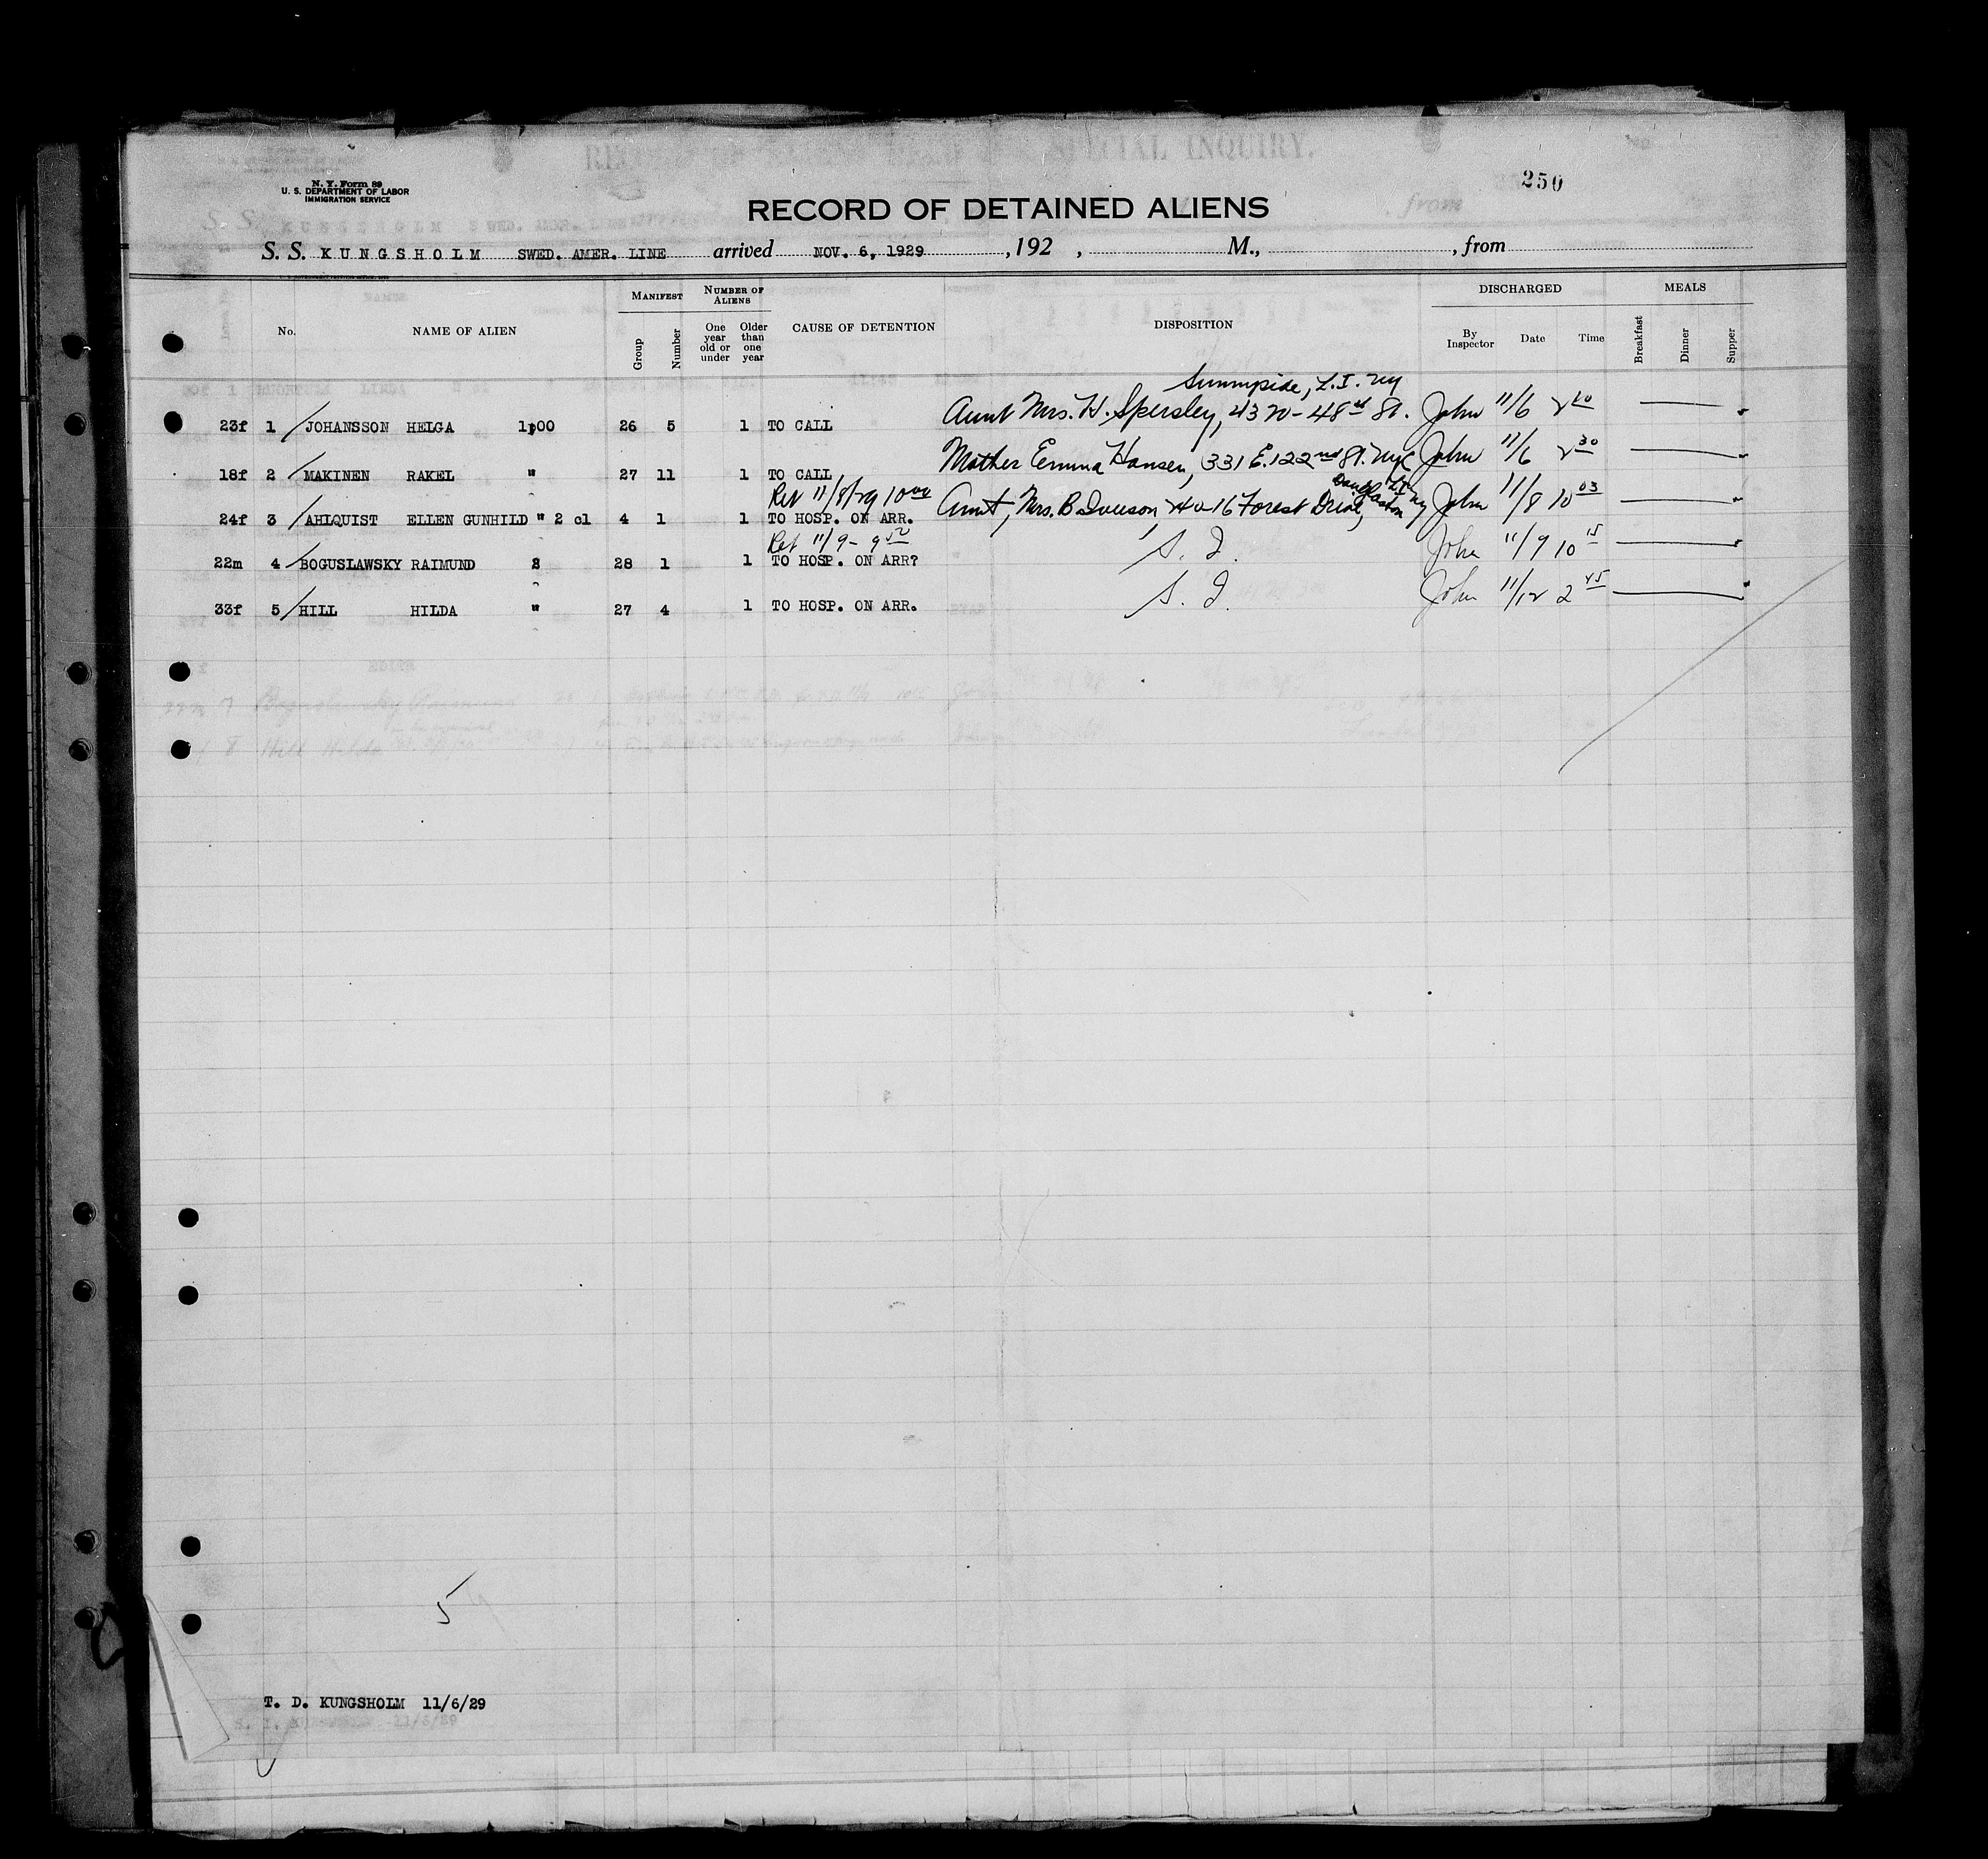 N. Y. Form 89
U. S. DEPARTMENT OF LABOR
IMMIGRATION SERVICE
250
RECORD OF DETAINED ALIENS
S. S. KUNGSHOLM SWED. AMER. LINE arrived NOV. 6, 1929, 192 , M., , from
No. NAME OF ALIEN MANIFEST Group Number NUMBER OF ALIENS One year old or under Older than one year CAUSE OF DETENTION DISPOSITION DISCHARGED By Inspector Date Time MEALS Breakfast Dinner Supper
Sunnyside, L.I. NY
23f 1 / JOHANSSON HELGA 1p00 26 5 1 TO CALL Aunt Mrs. H. Spersley, 4320-48th St. John 11/6 2
18f 2 / MAKINEN RAKEL " 27 11 1 TO CALL Mother Emma Hansen, 331 E. 122nd St. NYC John 11/6 2 30
Ret 11/8/29 10 00
24f 3 / AHLQUIST ELLEN GUNHILD " 2 cl 4 1 1 TO HOSP. ON ARR. Aunt, Mrs. B 16 Forest Drive, Douglaston L.I. NY John 11/8 10 03
Ret 11/9 - 9 50
22m 4 / BOGUSLAWSKY RAIMUND 28 1 1 TO HOSP. ON ARR? S. I. John 11/9 10 15
33f 5 / HILL HILDA " 27 4 1 TO HOSP. ON ARR. S. I. John 11/12 2 45
5
T. D. KUNGSHOLM 11/6/29